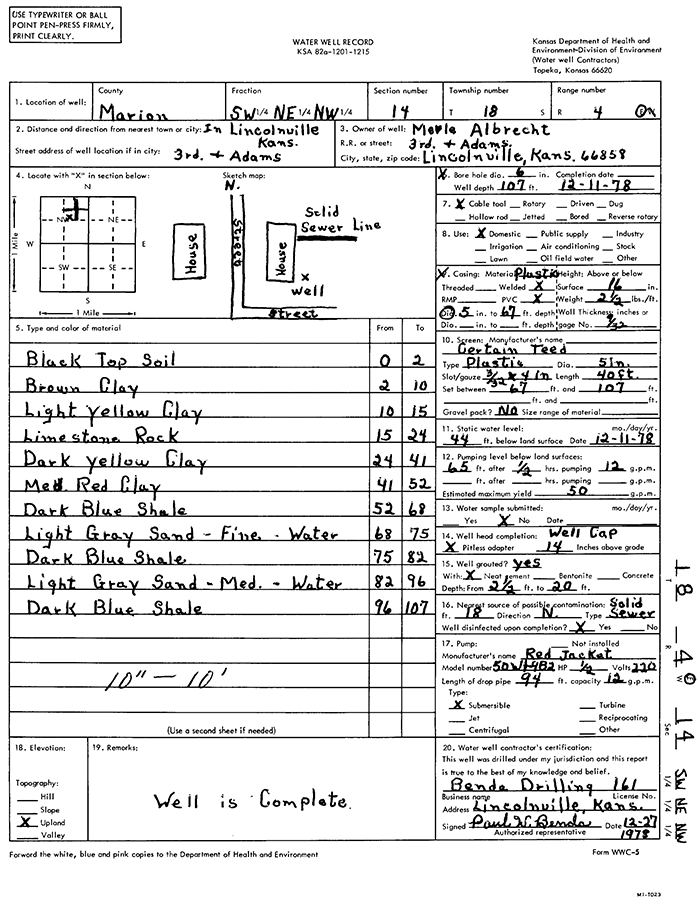 USE TYPEWRITER OR BALL
POINT PEN-PRESS FIRMLY,
PRINT CLEARLY.
WATER WELL RECORD
KSA 82a-1201-1215
Kansas Department of Health and
Environment-Division of Environment
(Water well Contractors)
Topeka, Kansas 66620
1. Location of well: County Marion Fraction SW 1/4 NE 1/4 NW 1/4 Section number 14 Township number T 18 S Range number R 4
2. Distance and direction from nearest town or city: In Lincolnville Kans.
Street address of well location if in city: 3rd. + Adams
3. Owner of well: Merle Albrecht
R.R. or street: 3rd. + Adams.
City, state, zip code: Lincolnville, Kans. 66858
4. Locate with "X" in section below:
N
NW NE
W E
SW SE
S
1 Mile
1 Mile
Sketch map:
N.
House
Street
House
Solid
Sewer Line
X
Well
Street
6. Bore hole dia. 6 in. Completion date
Well depth 107 ft. 12-11-78
7. X Cable tool Rotary Driven Dug
Hollow rod Jetted Bored Reverse rotary
8. Use: X Domestic Public supply Industry
Irrigation Air conditioning Stock
Lawn Oil field water Other
9. Casing: Material Plastic Height: Above or below
Threaded Welded X Surface 16 in.
RMP PVC X Weight 2 1/2 lbs./ft.
Dia. 5 in. to 67 ft. depth Wall Thickness: inches or
Dia. in. to ft. depth gage No. 9/32
5. Type and color of material From To
Black Top Soil 0 2
Brown Clay 2 10
Light Yellow Clay 10 15
Limestone Rock 15 24
Dark Yellow Clay 24 41
Med. Red Clay 41 52
Dark Blue Shale 52 68
Light Gray Sand - Fine. - Water 68 75
Dark Blue Shale 75 82
Light Gray Sand - Med. - Water 82 96
Dark Blue Shale 96 107
10" - 10'
(Use a second sheet if needed)
10. Screen: Manufacturer's name
Certain Teed
Type Plastic Dia. 5 in.
Slot/gauze 3/32 x 4 in Length 40 ft.
Set between 67 ft. and 107 ft.
ft. and ft.
Gravel pack? No Size range of material
11. Static water level: mo./day/yr.
44 ft. below land surface Date 12-11-78
12. Pumping level below land surfaces:
65 ft. after 1/2 hrs. pumping 12 g.p.m.
ft. after hrs. pumping g.p.m.
Estimated maximum yield 50 g.p.m.
13. Water sample submitted: mo./day/yr.
Yes X No Date
14. Well head completion: Well Cap
X Pitless adapter 14 Inches above grade
15. Well grouted? yes
With: X Neat cement Bentonite Concrete
Depth: From 2 1/2 ft. to 20 ft.
16. Nearest source of possible contamination: Solid
ft. 18 Direction N. Type Sewer
Well disinfected upon completion? X Yes No
17. Pump: Not installed
Manufacturer's name Red Jacket
Model number HP 1/2 Volts 220
Length of drop pipe 94 ft. capacity 12 g.p.m.
Type:
X Submersible Turbine
Jet Reciprocating
Centrifugal Other
18. Elevation:
Topography:
Hill
Slope
X Upland
Valley
19. Remarks:
Well is Complete.
20. Water well contractor's certification:
This well was drilled under my jurisdiction and this report
is true to the best of my knowledge and belief.
Benda Drilling 161
Business name License No.
Address Lincolnville, Kans.
Signed Paul W. Benda Date 12-27
Authorized representative 1978
Forward the white, blue and pink copies to the Department of Health and Environment
Form WWC-5
T 18 - R 4 W Sec 14 1/4 SW 1/4 NE 1/4 NW